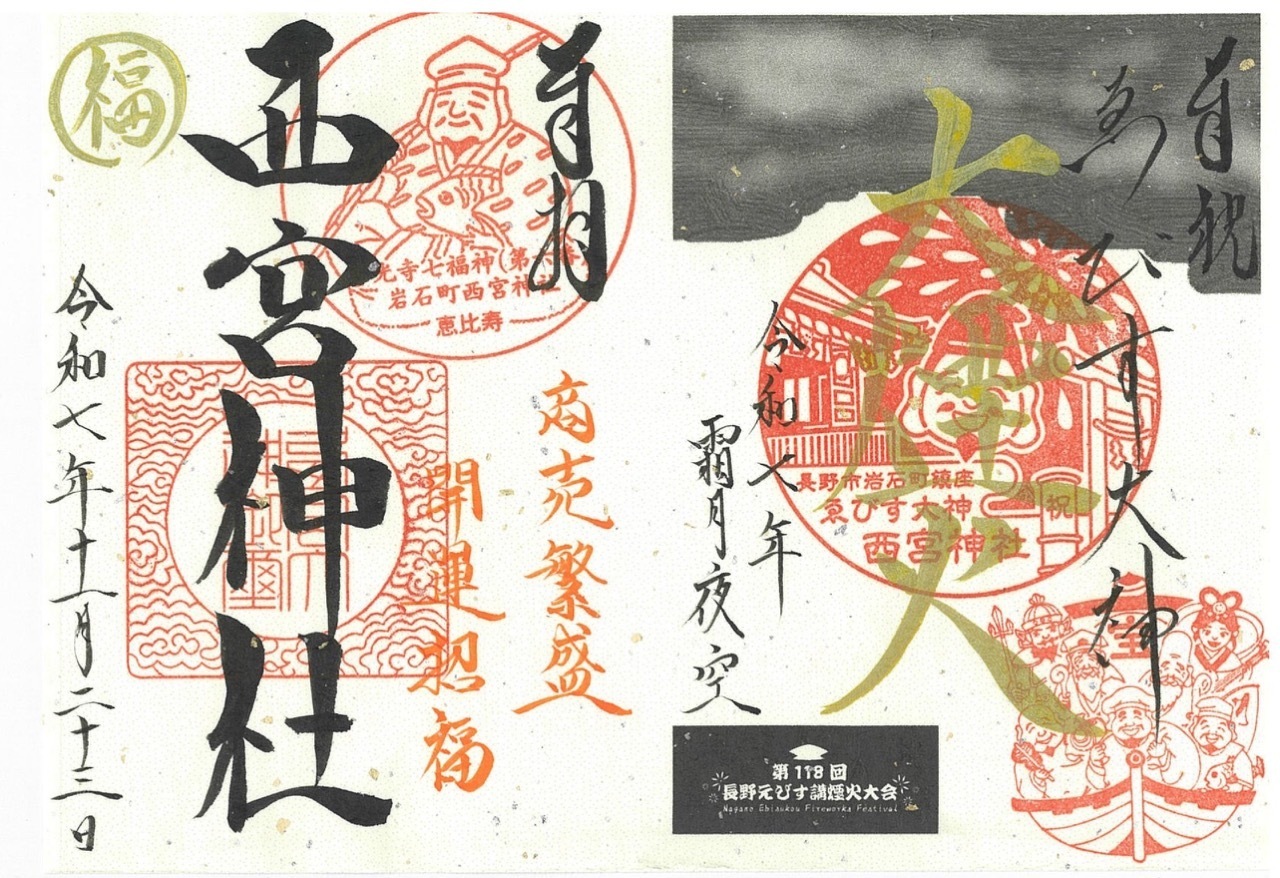 奉祝
ゑびす大神
大煙火
令和七年
霜月夜空
長野市岩石町鎮座
ゑびす大神
祝
西宮神社
第118回
長野えびす講煙火大会
Nagano Ebisukou Fireworks Festival
奉拝
光寺七福神(第
岩石町西宮神社
恵比寿
商売繁盛
開運招福
西宮神社
福
令和七年十一月二十三日